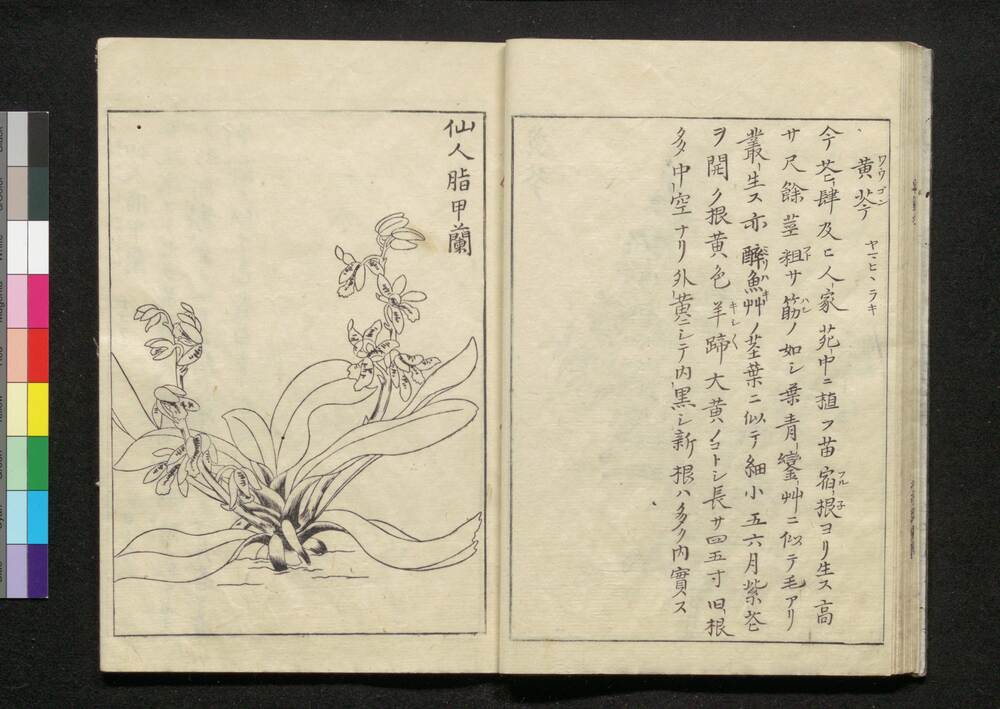 黄芩 ワウゴン ヤマヒヽラキ
今花肆及ヒ人家苑中ニ植フ苗宿根ヨリ生ス高
サ尺餘茎粗サ筋ノ如シ葉青鑾艸ニ似テ毛アリ
叢生ス亦醉魚艸ノ茎葉ニ似テ細小五六月紫花
ヲ開ク根黄色羊蹄大黄ノコトシ長サ四五寸旧根
多ク中空ナリ外黄ニシテ内黒シ新根ハ多ク内實ス
仙人脂甲蘭